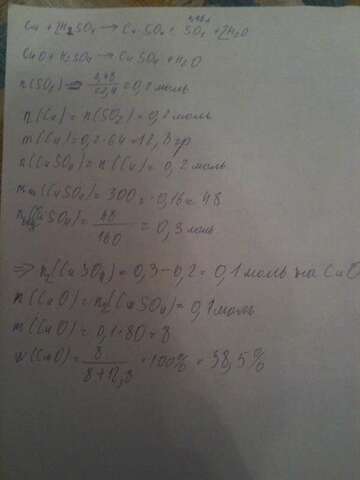 Cu + 2H₂SO₄ → CuSO₄ + SO₂ + 2H₂O
CuO + H₂SO₄ → CuSO₄ + H₂O
n(SO₂) = 4,48/22,4 = 0,2 моль
n(Cu) = n(SO₂) = 0,2 моль
m(Cu) = 0,2·64 = 12,8 гр
n(CuSO₄) = n(Cu) = 0,2 моль
m(CuSO₄) = 300·0,16 = 48
n(CuSO₄) = 48/160 = 0,3 моль
=> n₂(CuSO₄) = 0,3-0,2 = 0,1 моль на CuO
n(CuO) = n₂(CuSO₄) = 0,1 моль
m(CuO) = 0,1·80 = 8
w(CuO) = 8/8+12,8 ·100% = 38,5%